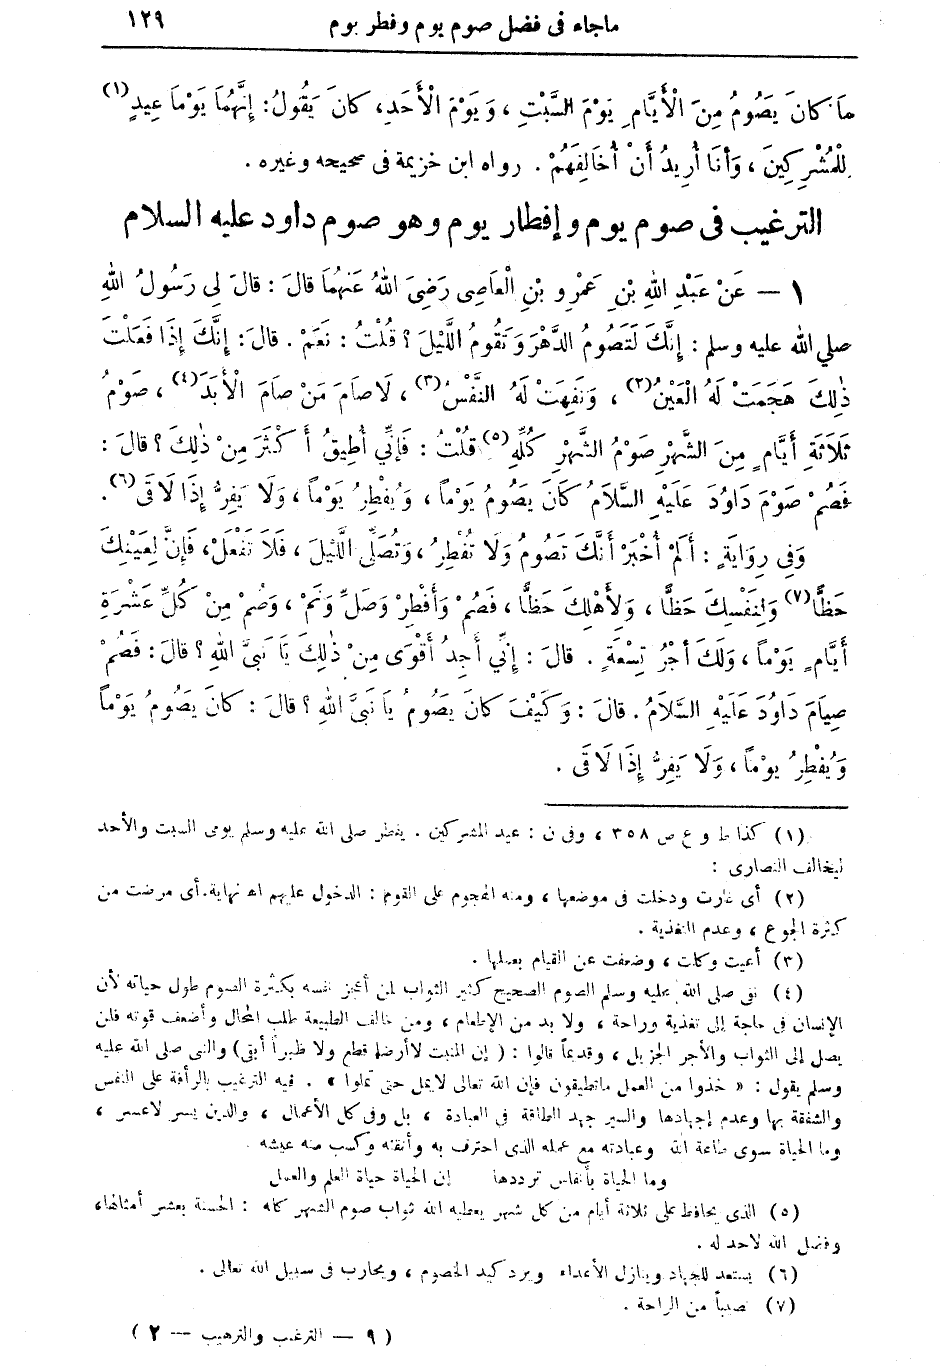 ماجاء فى فضل صوم يوم وفطر يوم ١٢٩
مَا كانَ يَصُومُ مِنَ الْأَيَّامِ يَوْمَ السَّبْتِ ، وَيَوْمَ الْأَحَدِ، كانَ يَقُولُ: إِنَّهُمَا يَوْمَا عِيدٍ(١)
لِلْمُشْرِكِينَ ، وَأَنَا أُرِيدُ أَنْ أُخَالِفَهُمْ . رواه ابن خزيمة فى صحيحه وغيره .
الترغيب فى صوم يوم وإفطار يوم وهو صوم داود عليه السلام
١ — عَنْ عَبْدِ اللهِ بْنِ عَمْرِو بْنِ الْعَاصِى رَضِيَ اللهُ عَنْهُمَا قالَ : قالَ لِى رَسُولُ اللهِ
صلي الله عليه وسلم : إِنَّكَ لَتَصُومُ الدَّهْرَ وَتَقُومُ اللَّيْلَ ؟ قُلْتُ : نَعَمْ . قالَ: إِنَّكَ إِذَا فَعَلْتَ
ذٰلِكَ هَجَمَتْ لَهُ الْعَيْنُ(٢) ، وَنَفِهَتْ لَهُ النَّفْسُ(٣) ، لَاصَامَ مَنْ صَامَ الْأَبَدَ(٤) ، صَوْمُ
ثَلَاثَةِ أَيَّامٍ مِنَ الشَّهْرِ صَوْمُ الشَّهْرِ كُلِّهِ(٥) قُلْتُ : فَإِنِّي أُطِيقُ أَكْثَرَ مِنْ ذٰلِكَ ؟ قالَ :
فَصُمْ صَوْمَ دَاوُدَ عَلَيْهِ السَّلَامُ كَانَ يَصُومُ يَوْماً ، وَيُفْطِرُ يَوْماً ، وَلَا يَفِرُّ إِذَا لَاقَى(٦) .
وَفِي رِوَايَةٍ : أَلَمْ أُخْبَرْ أَنَّكَ تَصُومُ وَلَا تُفْطِرُ ، وَتُصَلِّى اللَّيْلَ ، فَلَا تَفْعَلْ، فَإِنَّ لِعَيْنِكَ
حَظًّا(٧) وَلِنَفْسِكَ حَظًّا ، وَلِأَهْلِكَ حَظًّا ، فَصُمْ وَأَفْطِرْ وَصَلِّ وَنَمْ ، وَصُمْ مِنْ كُلِّ عَشْرَةِ
أَيَّامٍ يَوْماً ، وَلَكَ أَجْرُ تِسْعَةٍ . قالَ : إِنِّي أَجِدُ أَقْوَى مِنْ ذٰلِكَ يَا نَبِيَّ اللهِ ؟ قالَ : فَصُمْ
صِيَامَ دَاوُدَ عَلَيْهِ السَّلَامُ . قالَ : وَكَيْفَ كانَ يَصُومُ يَا نَبِيَّ اللهِ ؟ قالَ : كانَ يَصُومُ يَوْماً
وَيُفْطِرُ يَوْماً ، وَلَا يَفِرُّ إِذَا لَاقَى .
(١) كذا ط و ع ص ٣٥٨ ، وفى ن : عيد المشركين . يفطر صلى الله عليه وسلم يومى السبت والأحد
ليخالف النصارى :
(٢) أى غارت ودخلت فى موضعها ، ومنه الهجوم على القوم : الدخول عليهم اه نهاية. أى مرضت من
كثرة الجوع ، وعدم التغذية .
(٣) أعيت وكلت ، وضعفت عن القيام بعملها .
(٤) نفى صلى الله عليه وسلم الصوم الصحيح كثير الثواب لمن أعجز نفسه بكثرة الصوم طول حياته لأن
الإنسان فى حاجة إلى تغذية وراحة ، ولا بد من الإطعام ، ومن خالف الطبيعة طلب المحال وأضعف قوته فلن
يصل إلى الثواب والأجر الجزيل ، وقديماً قالوا : ( إن المنبت لاأرضا قطع ولا ظهراً أبقى) والنبى صلى الله عليه
وسلم يقول : « خذوا من العمل ماتطيقون فإن الله تعالى لايمل حتى تملوا » . فيه الترغيب بالرأفة على النفس
والشفقة بها وعدم إجهادها والسير جهد الطاقة فى العبادة ، بل وفى كل الأعمال ، والدين يسر لاعسر ،
وما الحياة سوى طاعة الله وعبادته مع عمله الذى احترف به وأتقنه وكسب منه عيشه
وما الحياة بأنفاس ترددها إن الحياة حياة العلم والعمل
(٥) الذى يحافظ على ثلاثة أيام من كل شهر يعطيه الله ثواب صوم الشهر كله : الحسنة بعشر أمثالها،
وفضل الله لاحد له .
(٦) يستعد للجهاد وينازل الأعداء ويرد كيد الخصوم ، ويحارب فى سبيل الله تعالى .
(٧) نصيباً من الراحة .
( ٩ — الترغيب والترهيب — ٢ )